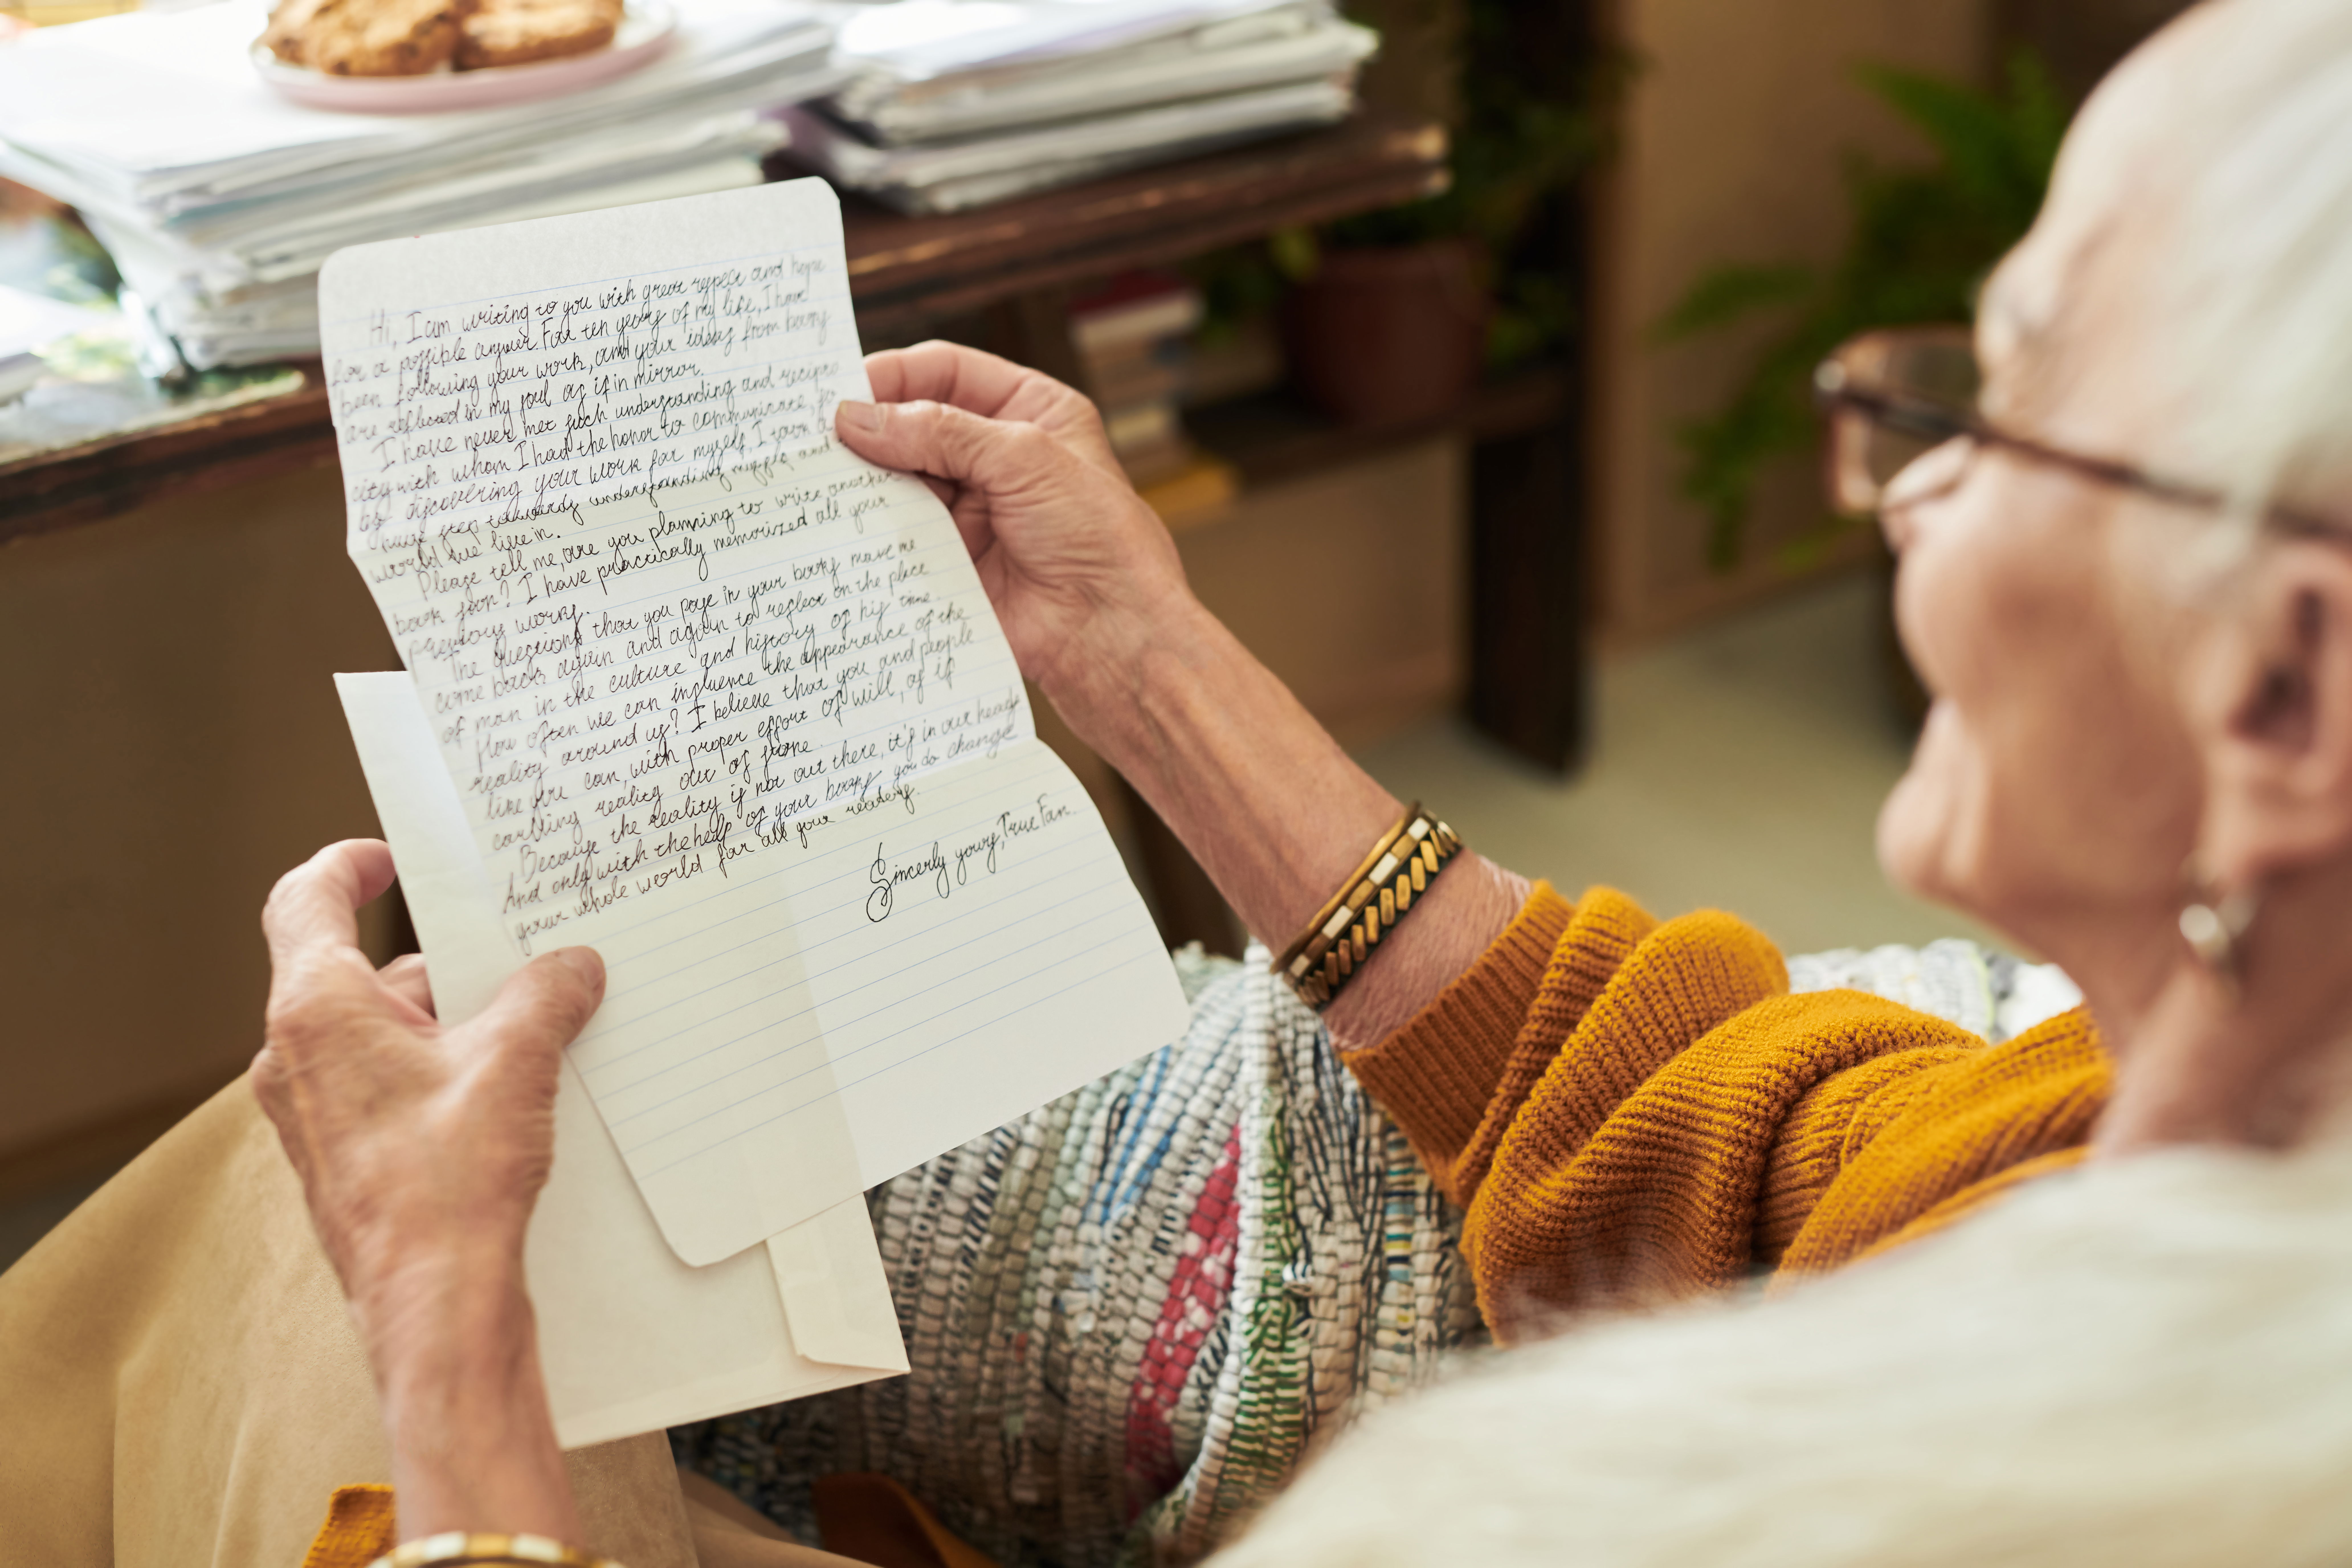 Hi, I am writing to you with great respect and hope
for a possible answer. For ten years of my life, I have
been following your work, and your ideas from books
are reflected in my soul as if in mirror.
I have never met such understanding and recipro
city with whom I had the honor to communicate, so
by discovering your work for myself, I took a
huge step towards understanding myself and
world we live in.
Please tell me, are you planning to write another
book soon? I have practically memorized all your
previous works.
The questions that you pose in your books make me
come back again and again to reflect on the place
of man in the culture and history of his time.
How often we can influence the appearance of the
reality around us? I believe that you and people
like you can, with proper effort of will, as if
carving reality out of stone.
Because the reality is not out there, it's in our heads
And only with the help of your books you do change
your whole world for all your readers.
Sincerly yours, True Fan.